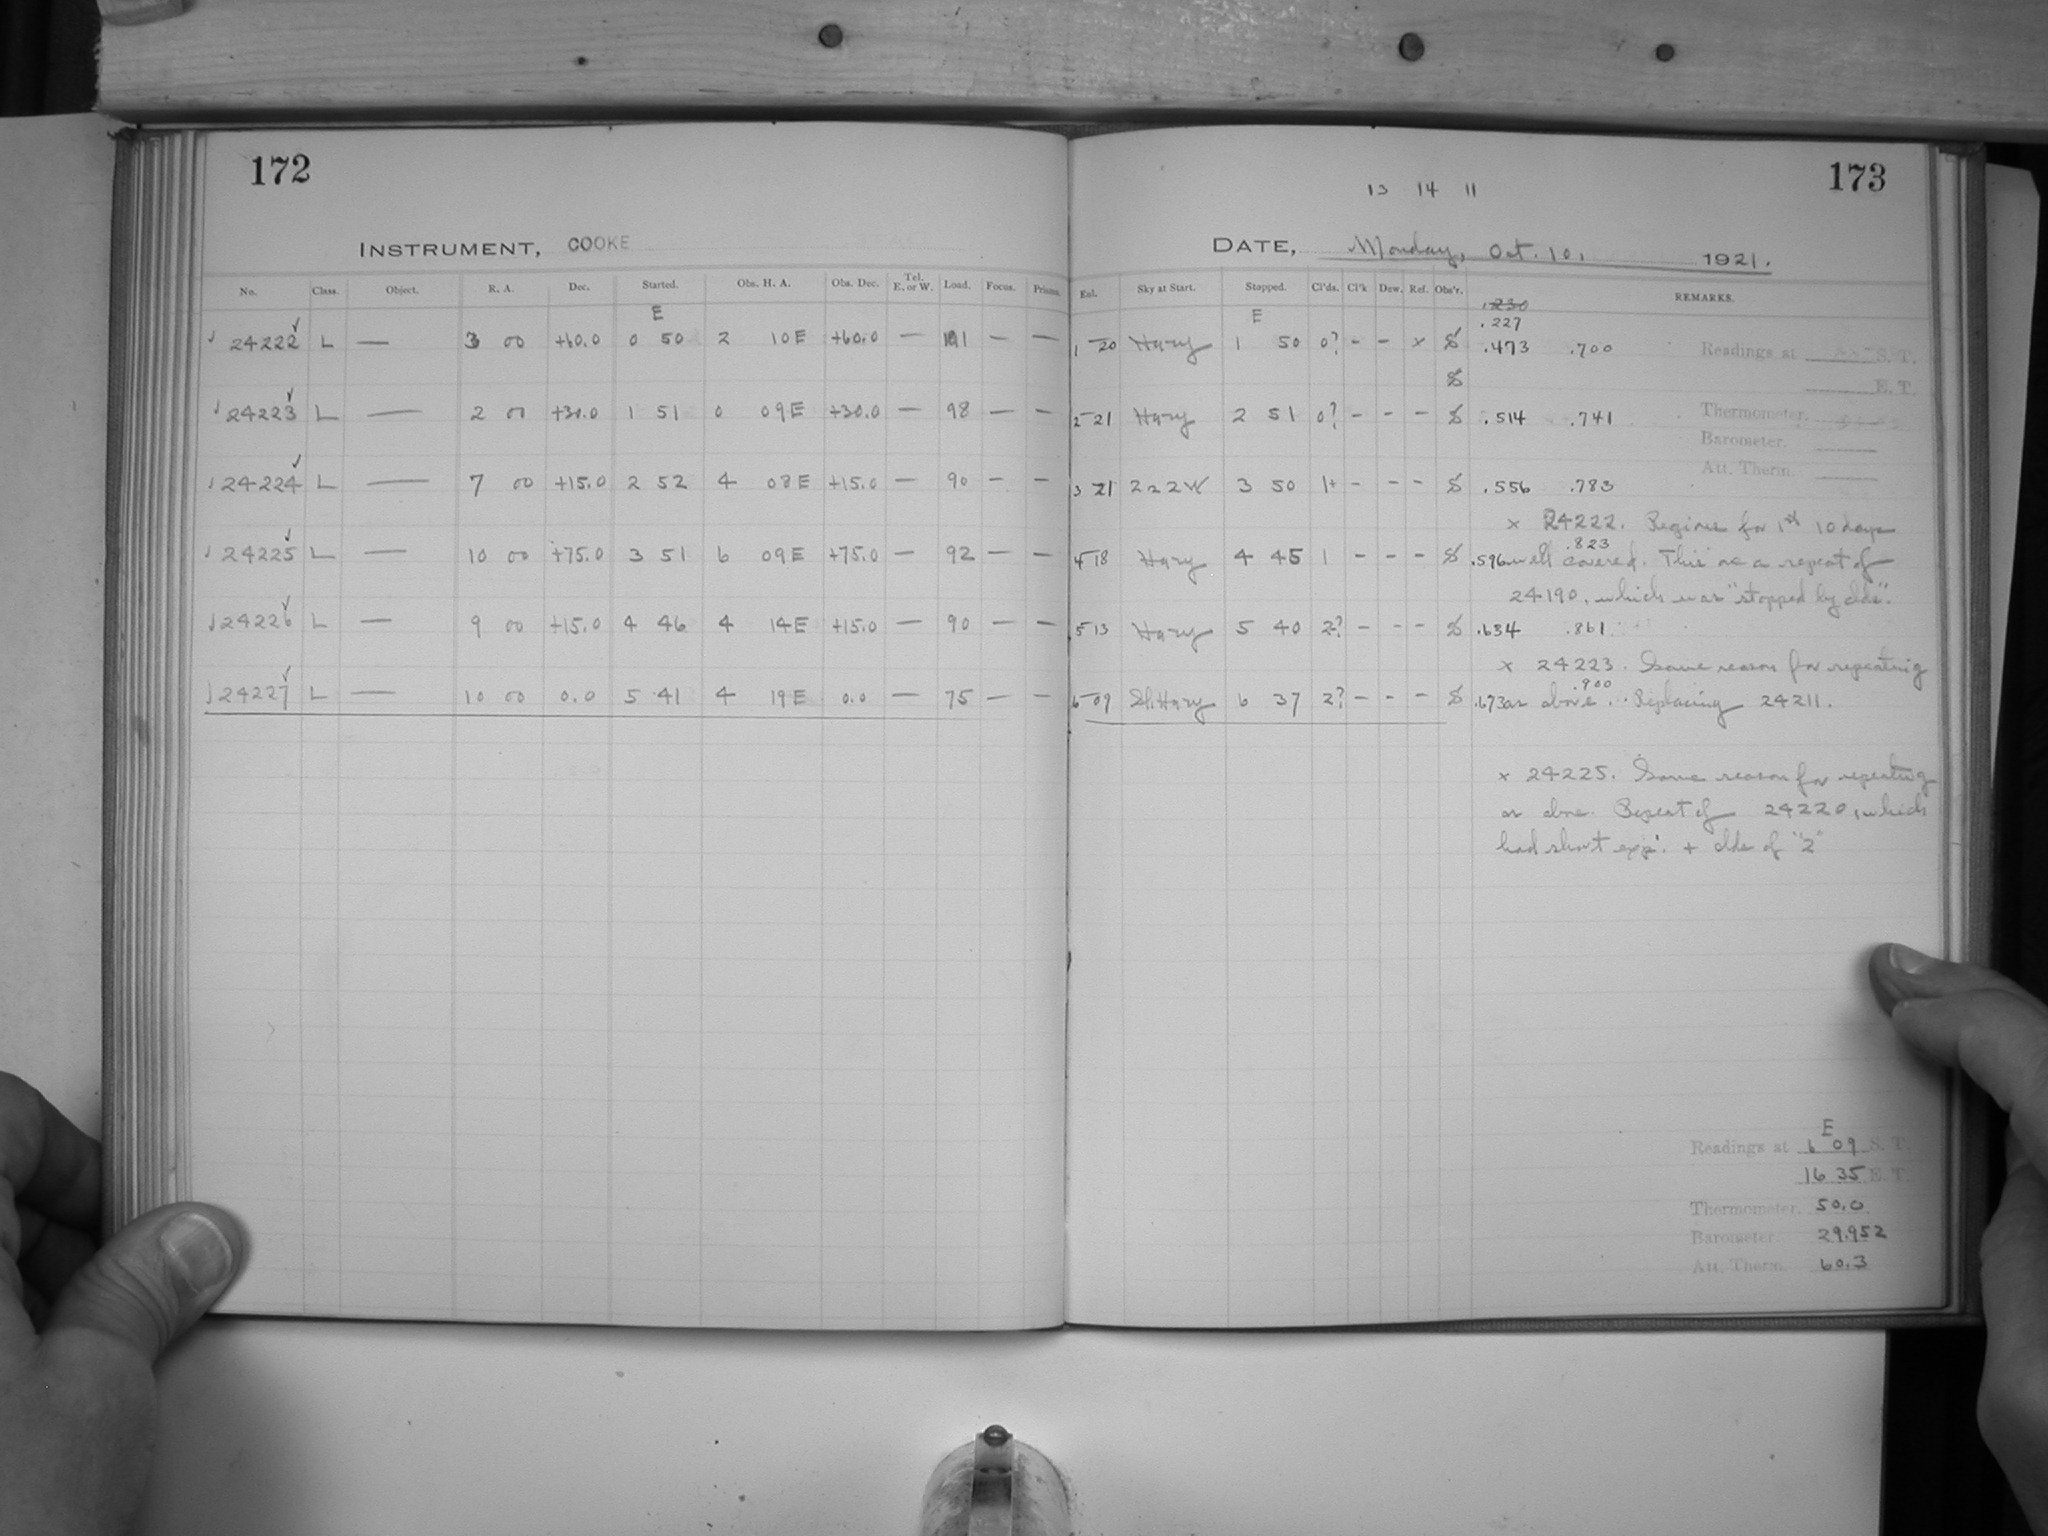 172
INSTRUMENT, COOKE
No. Class. Object. R. A. Dec. Started. Obs. H. A. Obs. Dec. Tel. E. or W. Load. Focus. Prisms.
E
24222 L — 3 00 +60.0 0 50 2 10E +60.0 — 101 — —
24223 L — 2 00 +30.0 1 51 0 09E +30.0 — 98 — —
24224 L — 7 00 +15.0 2 52 4 08E +15.0 — 90 — —
24225 L — 10 00 +75.0 3 51 6 09E +75.0 — 92 — —
24226 L — 9 00 +15.0 4 46 4 14E +15.0 — 90 — —
24227 L — 10 00 0.0 5 41 4 19E 0.0 — 75 — —
173
13 14 11
DATE, Monday, Oct. 10, 1921.
Sky at Start. Stopped. Cl'ds. Cl'k Dew. Ref. Obs'r. REMARKS.
.230
E
.227
1 20 Hazy 1 50 0? - - x S .473 .700
Readings at S. T.
S
E. T.
2 21 Hazy 2 51 0? - - - S .514 .741
Thermometer.
Barometer.
Att. Therm.
3 21 2 3 50 1+ - - - S .556 .783
x 24222. Regions for 1st 10 days
.823
4 18 Hazy 4 45 1 - - - S .596 well covered. This is a repeat of
24190, which was "stopped by clds".
5 13 Hazy 5 40 2? - - - S .634 .861
x 24223. Same reason for repeating
.900
6 09 Sl. Hazy 6 37 2? - - - S .673 as above. Replacing 24211.
x 24225. Same reason for repeating
as above. Repeat of 24220, which
had short exp. + clds of "2"
E
Readings at 6 09 S. T.
16 35 E. T.
Thermometer. 50.0
Barometer. 29.952
Att. Therm. 60.3